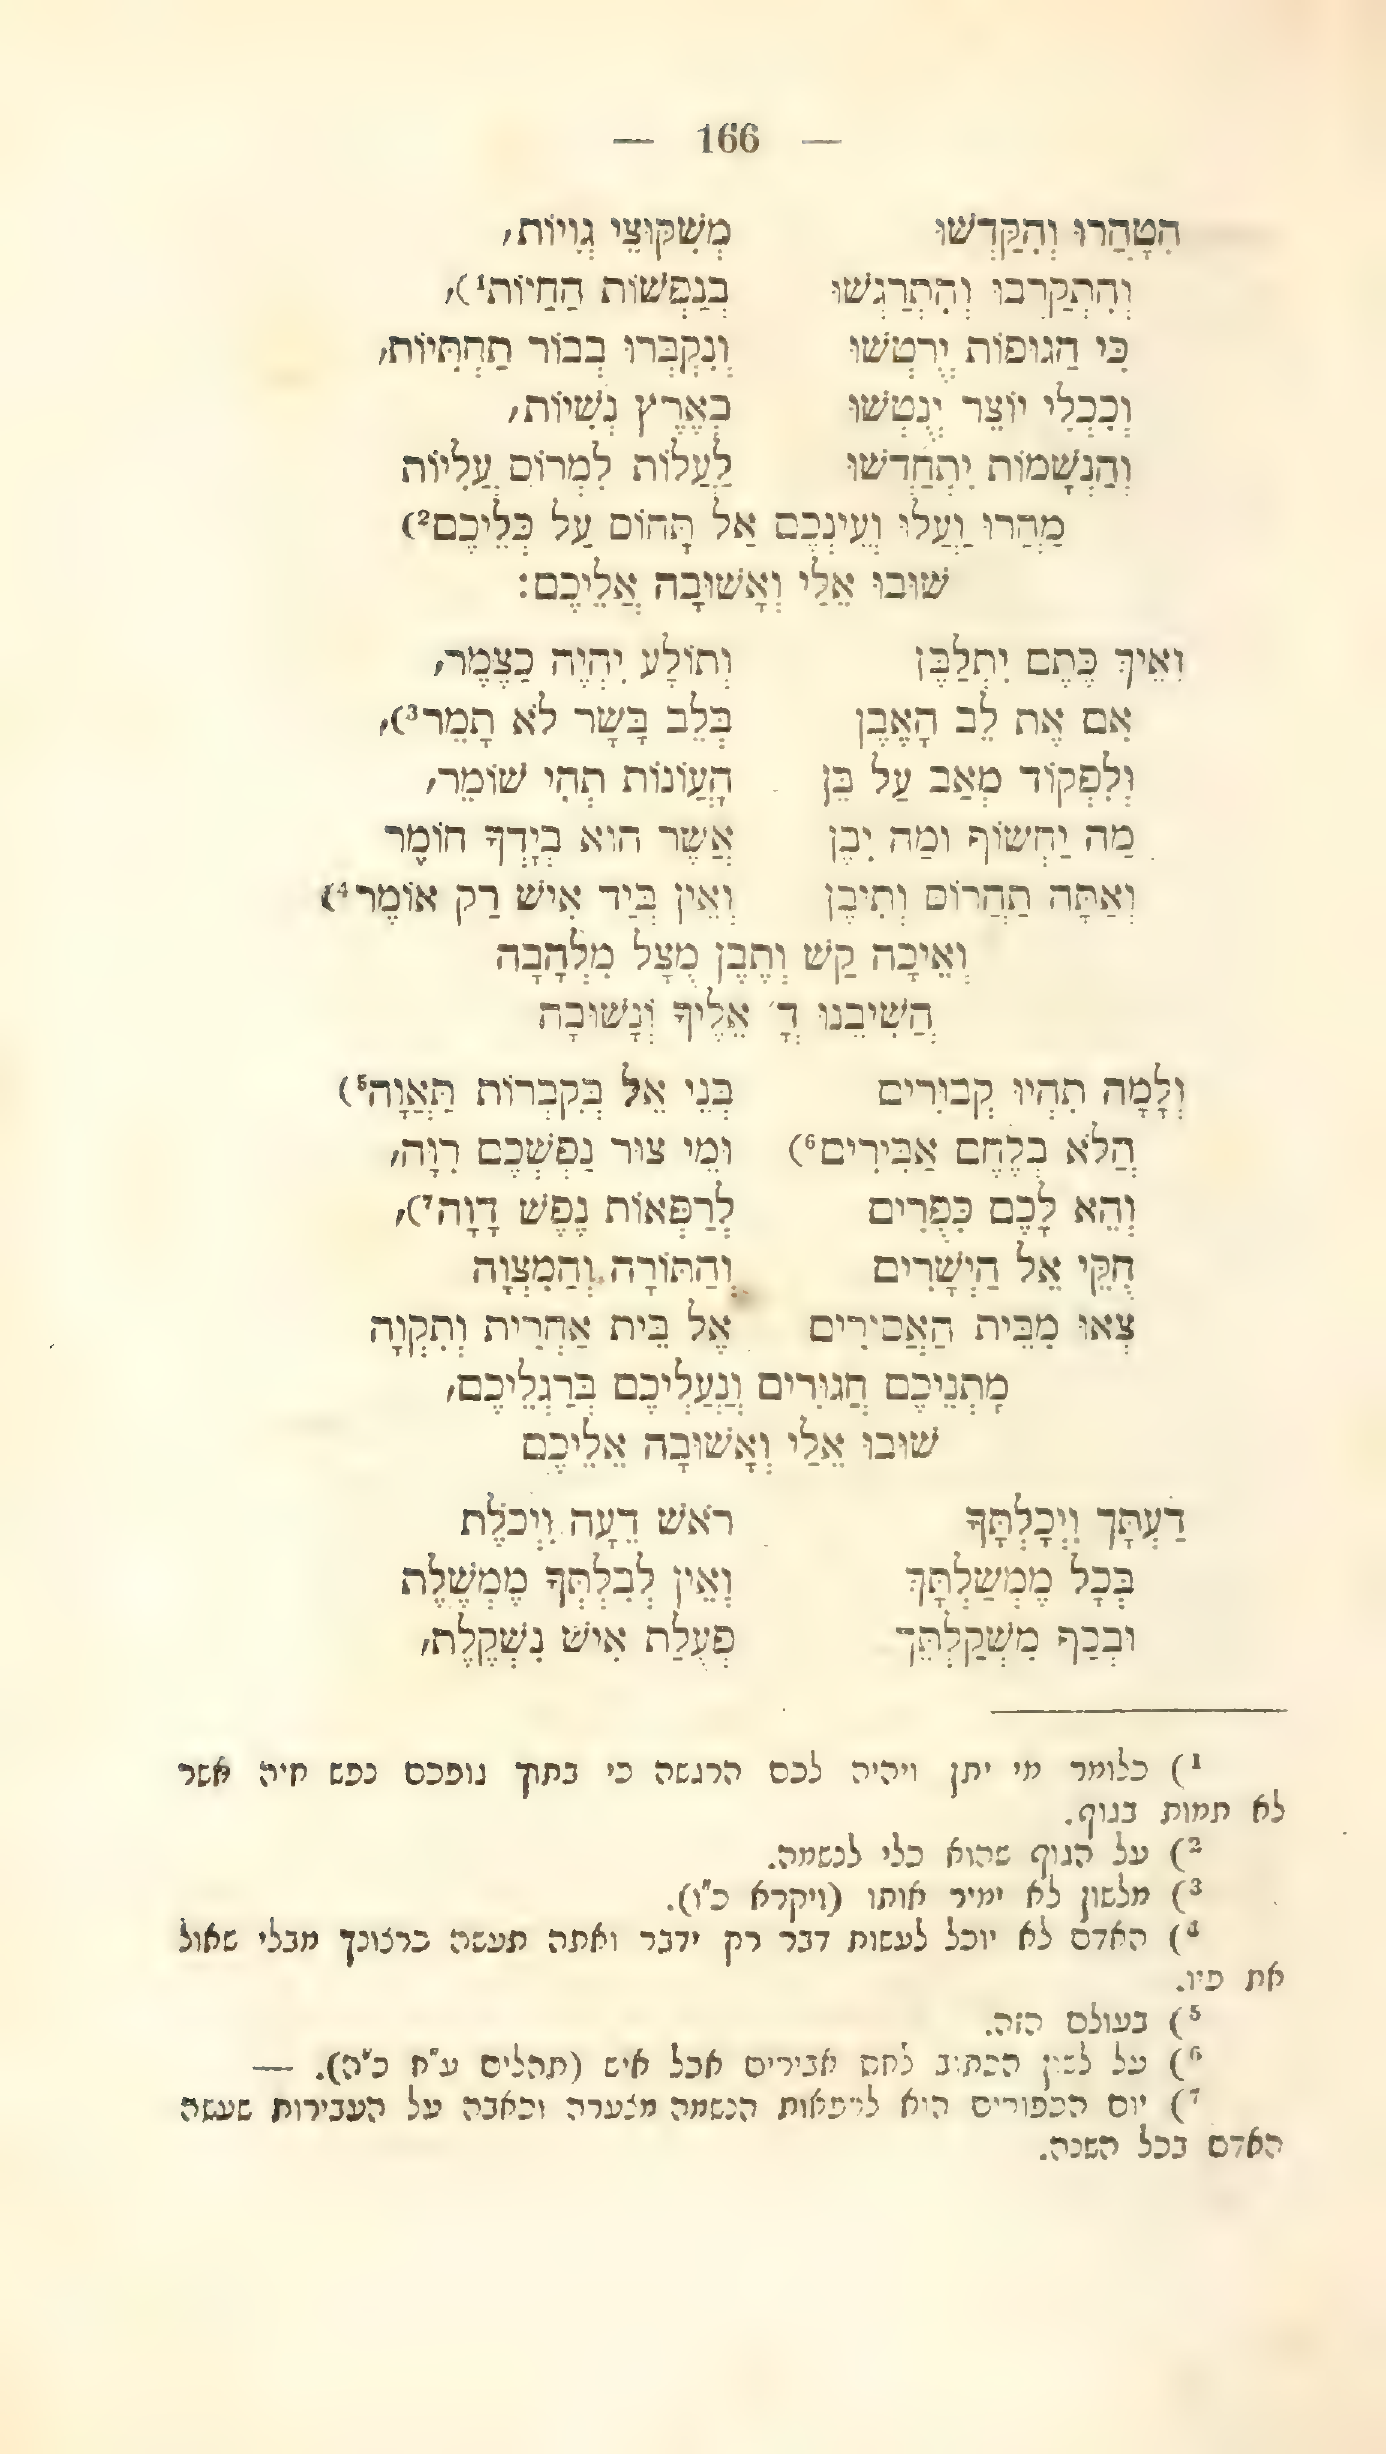 — 166 —
הִטָּהֲרוּ וְהִקַּדְּשׁוּ מִשִּׁקּוּצֵי גְוִיּוֹת,
וְהִתְקָרְבוּ וְהִתְרַגְּשׁוּ בְּנַפְשׁוֹת הַחַיּוֹת¹),
כִּי הַגּוּפוֹת יְרֻטָּשׁוּ וְנִקְבְּרוּ בְּבוֹר תַּחְתִּיּוֹת,
וְכִכְלִי יוֹצֵר יֻנְטְשׁוּ בְּאֶרֶץ נְשִׁיּוֹת,
וְהַנְּשָׁמוֹת יִתְחַדְּשׁוּ לַעֲלוֹת לִמְרוֹם עֲלִיּוֹת
מַהֲרוּ וַעֲלוּ וְעֵינְכֶם אַל תָּחוֹס עַל כְּלֵיכֶם²)
שׁוּבוּ אֵלַי וְאָשׁוּבָה אֲלֵיכֶם:
וְאֵיךְ כֶּתֶם יִתְלַבֵּן וְתוֹלָע יִהְיֶה כַצֶּמֶר,
אִם אֶת לֵב הָאֶבֶן בְּלֵב בָּשָׂר לֹא תָמֵר³),
וְלִפְקוֹד מֵאַב עַל בֵּן הָעֲוֹנוֹת תְּהִי שׁוֹמֵר,
מַה יַּחְשׂוֹף וּמַה יִּבֶן אֲשֶׁר הוּא בְיָדְךָ חוֹמֶר
וְאַתָּה תַהֲרוֹס וְתִיבֶן וְאֵין בְּיַד אִישׁ רַק אוֹמֶר⁴)
וְאֵיכָה קַשׁ וְתֶבֶן מֻצָּל מִלֶּהָבָה
הֲשִׁיבֵנוּ דָ׳ אֵלֶיךָ וְנָשׁוּבָה
וְלָמָּה תִהְיוּ קְבוּרִים בְּנֵי אֵל בְּקִבְרוֹת תַּאֲוָה⁵)
הֲלֹא בְלֶחֶם אַבִּירִים⁶) וּמֵי צוּר נַפְשְׁכֶם רִוָּה,
וְהֵא לָכֶם כִּפֻּרִים לְרַפְּאוֹת נֶפֶשׁ דָּוָה⁷),
חֻקֵּי אֵל הַיְשָׁרִים וְהַתּוֹרָה וְהַמִּצְוָה
צְאוּ מִבֵּית הָאֲסִירִים אֶל בֵּית אַחֲרִית וְתִקְוָה
מָתְנֵיכֶם חֲגוּרִים וְנַעֲלֵיכֶם בְּרַגְלֵיכֶם,
שׁוּבוּ אֵלַי וְאָשׁוּבָה אֲלֵיכֶם
דַּעְתָּךְ וִיכָלְתָּךְ רֹאשׁ דֵּעָה וִיכֹלֶת
בְּכָל מֶמְשַׁלְתָּךְ וְאֵין לְבִלְתְּךָ מֶמְשֶׁלֶת
וּבְכַף מִשְׁקַלְתֵּךְ פְּעֻלַּת אִישׁ נִשְׁקֶלֶת,
¹) כלומר מי יתן ויהיה לכם הרגשה כי בתוך גופכם נפש חיה אשר
לא תמות בגוף.
²) על הגוף שהוא כלי לנשמה.
³) מלשון לא ימיר אותו (ויקרא כ״ו).
⁴) האדם לא יוכל לעשות דבר רק ידבר ואתה תעשה כרצונך מבלי שאול
את פיו.
⁵) בעולם הזה.
⁶) על לשון הכתוב לחם אבירים אכל איש (תהלים ע״ח כ״ה). —
⁷) יום הכפורים היא לרפאות הנשמה מצערה וכאבה על העבירות שעשה
האדם בכל השנה.